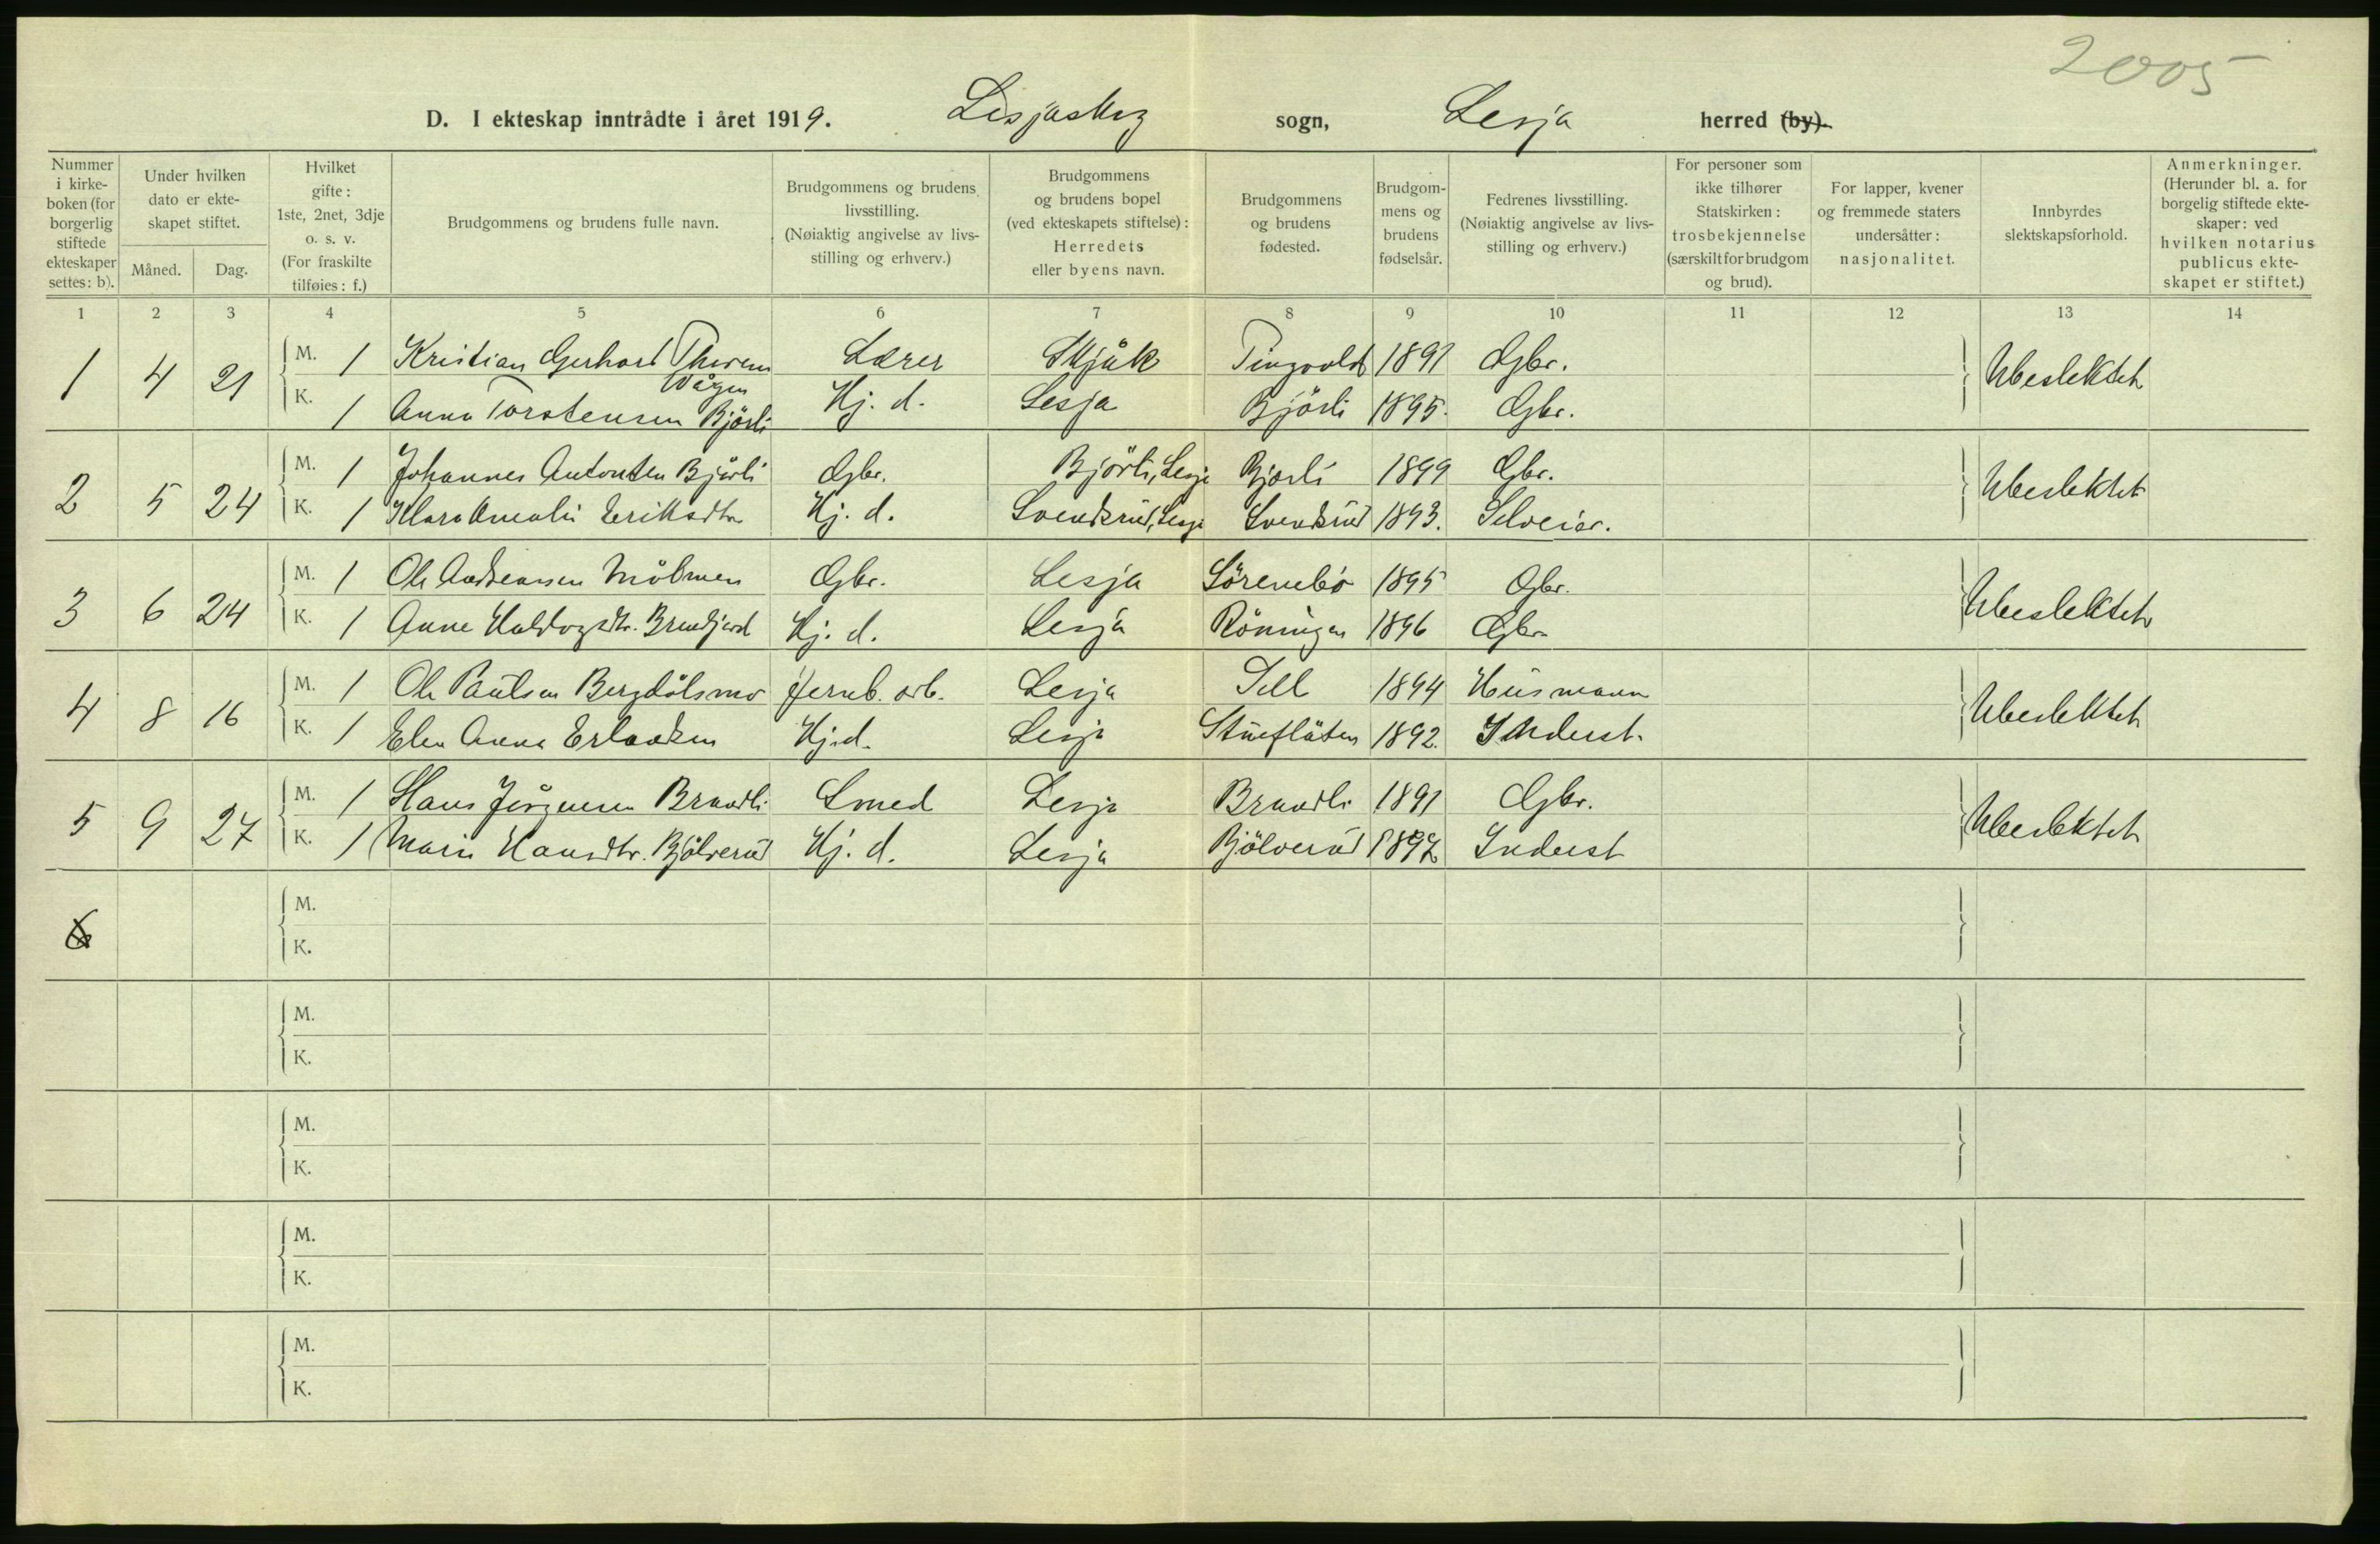 2005
D. I ekteskap inntrådte i året 1919. Lesjaskog sogn, Lesja herred (by).
Nummer i kirke-boken (for borgerlig stiftede ekteskaper settes: b). Under hvilken dato er ekte-skapet stiftet. Måned. Dag. Hvilket gifte: 1ste, 2net, 3dje o. s. v. (For fraskilte tilføies: f.) Brudgommens og brudens fulle navn. Brudgommens og brudens livsstilling. (Nøiaktig angivelse av livs-stilling og erhverv.) Brudgommens og brudens bopel (ved ekteskapets stiftelse): Herredets eller byens navn. Brudgommens og brudens fødested. Brudgom-mens og brudens fødselsår. Fedrenes livsstilling. (Nøiaktig angivelse av livs-stilling og erhverv.) For personer som ikke tilhører Statskirken: trosbekjennelse (særskilt for brudgom og brud). For lapper, kvener og fremmede staters undersåtter: nasjonalitet. Innbyrdes slektskapsforhold. Anmerkninger. (Herunder bl. a. for borgelig stiftede ekte-skaper: ved hvilken notarius publicus ekte-skapet er stiftet.)
1 2 3 4 5 6 7 8 9 10 11 12 13 14
1 4 21 M. 1 Kristian Gerhard Vågen Lærer Skjåk Tingvold 1891 Gbr. Ubeslektet
K. 1 Anna Torstensen Bjørli Hj. d. Lesja Bjørli 1895. Gbr.
2 5 24 M. 1 Johannes Antonsen Bjørli Gbr. Bjørli, Lesja Bjorli 1899 Gbr. Ubeslektet
K. 1 Klara Amalie Eriksdtr Hj. d. Svendsrud, Lesja Svendsrud 1893. Selveier.
3 6 24 M. 1 Ole Andreassen Mølmen Gbr. Lesja Sørenebø 1895 Gbr. Ubeslektet
K. 1 Anne Haldogsdtr. Hj. d. Lesja Røningen 1896 Gbr.
4 8 16 M. 1 Ole Paulsen Bergdølsmo Jernb. arb. Lesja Sell 1894 Husmann Ubeslektet
K. 1 Elen Anna Erlandsen Hj. d. Lesja Stueflåten 1892. Inderst.
5 9 27 M. 1 Hans Jørgensen Brandli Smed Lesja Brandli 1891 Gbr. Ubeslektet
K. 1 Marie Hansdtr. Bjølverud Hj. d. Lesja Bjølverud 1897 Inderst
6 M.
K.
M.
K.
M.
K.
M.
K.
M.
K.